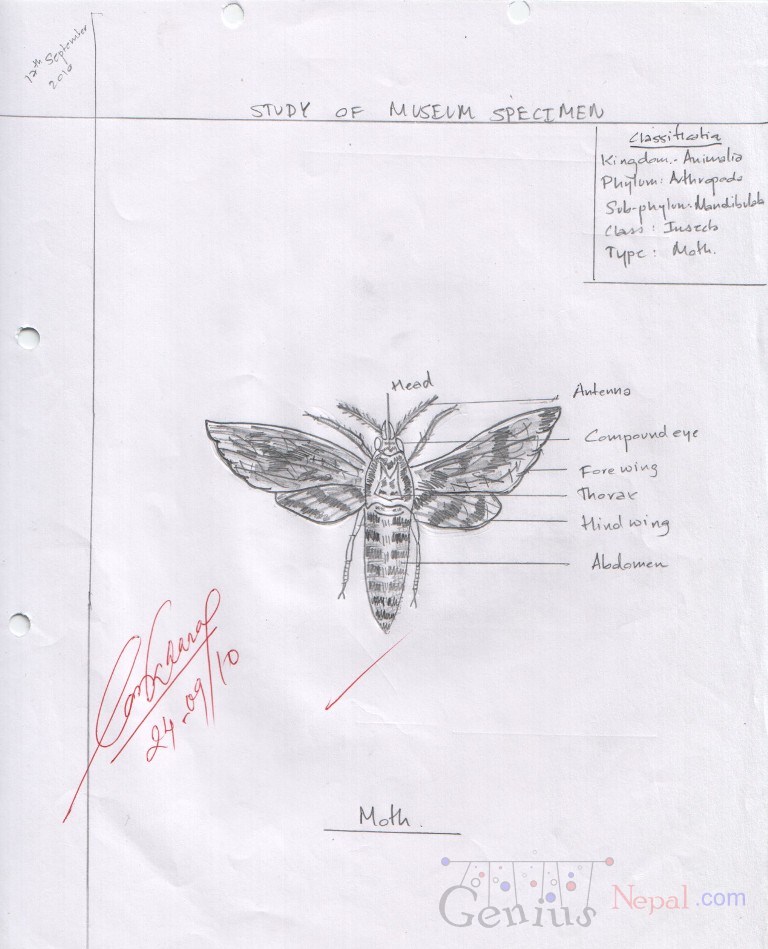 12th September
2010
STUDY OF MUSEUM SPECIMEN
Classification
Kingdom:- Animalia
Phylum: Arthropoda
Sub-phylum: Mandibulata
Class: Insecta
Type: Moth.
Head
Antenna
Compound eye
Fore wing
Thorax
Hind wing
Abdomen
24-09/10
Moth.
Genius Nepal.com